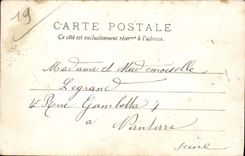 19
CARTE POSTALE
Ce côté est exclusivement réservé à l'adresse.
Madame et Mademoiselle
Legrand
4 Rue Gambetta 4
à Nanterre
Seine